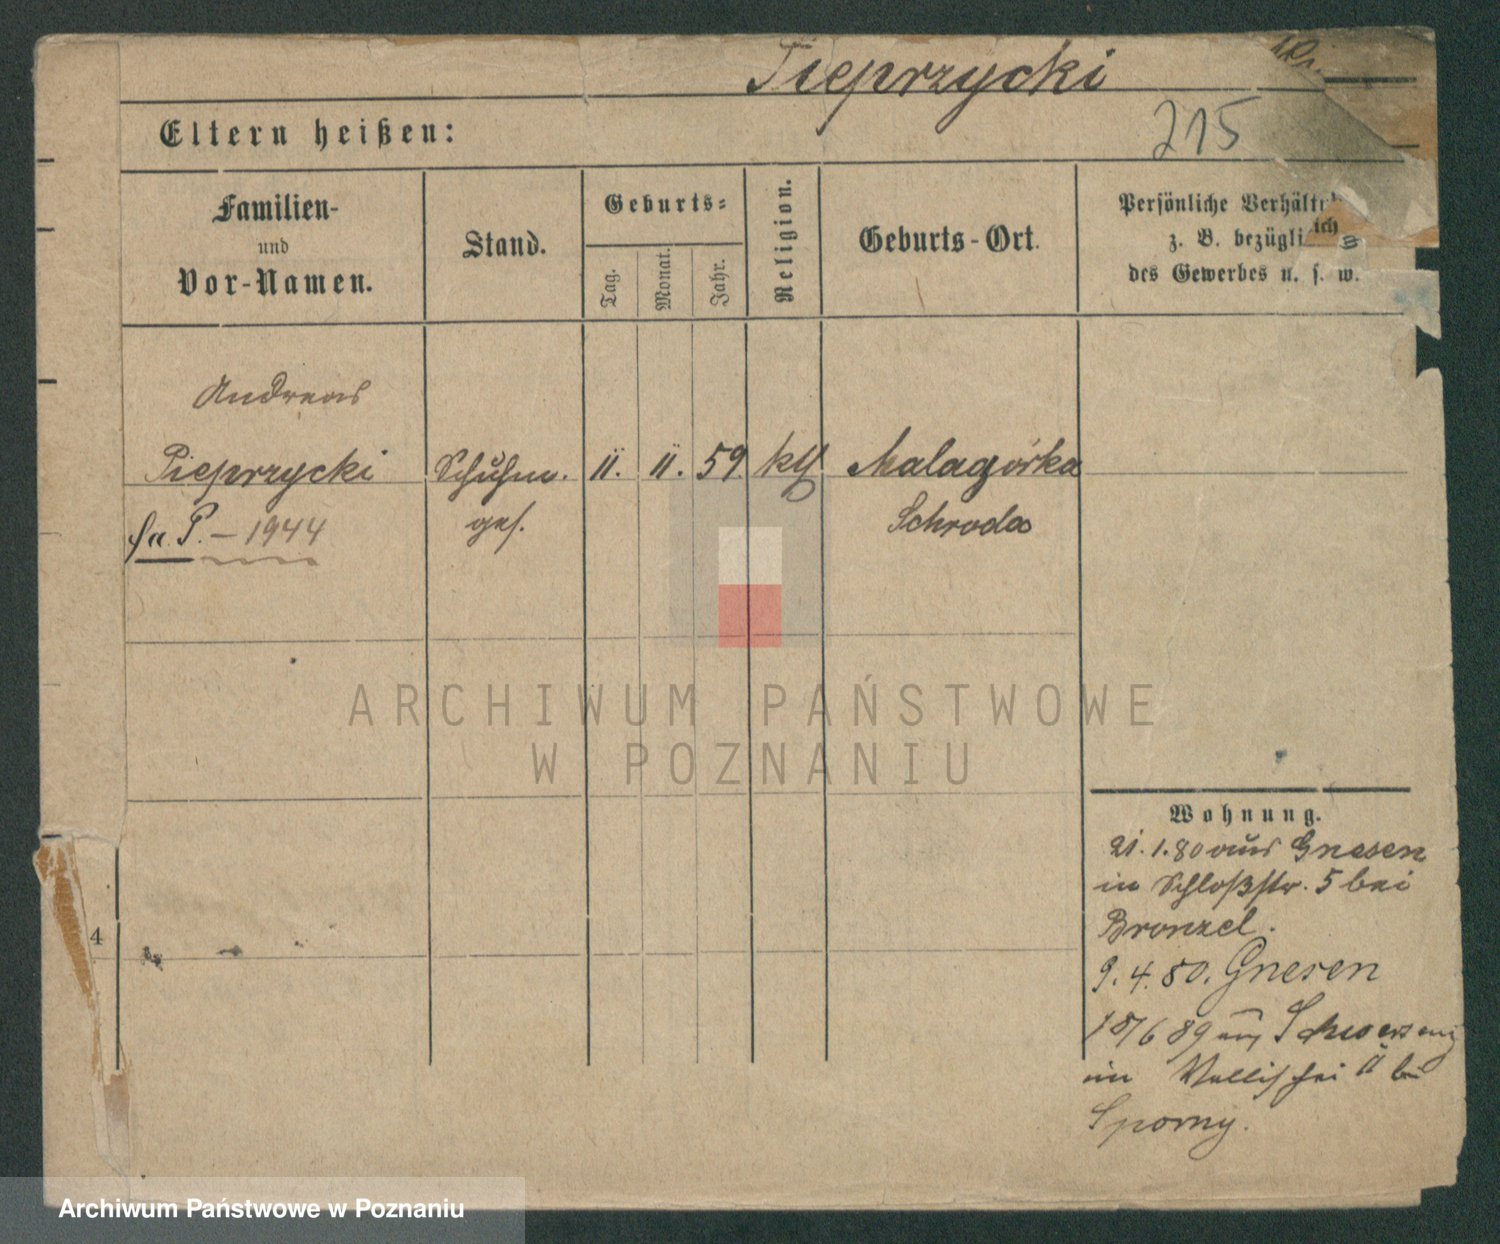 Pieprzycki
215
Eltern heißen:
Familien-
und
Vor-Namen.
Stand.
Geburts-
Tag.
Monat.
Jahr.
Religion.
Geburts-Ort.
Persönliche
z. B.
ich
des Gewerbes u. s. w.
Andreas
Pieprzycki
Schuhm.
11.
11.
59.
kth
Malagórka
fa. P. - 1944
ges.
Schroda
ARCHIWUM PAŃSTWOWE
W POZNANIU
Wohnung.
21.1.80 aus Gnesen
in Schloßstr. 5 bei
Bronzel.
9.4.80. Gnesen
18/6 89 aus Schwersenz
in Wallischei 11 bei
Sporny.
4
Archiwum Państwowe w Poznaniu